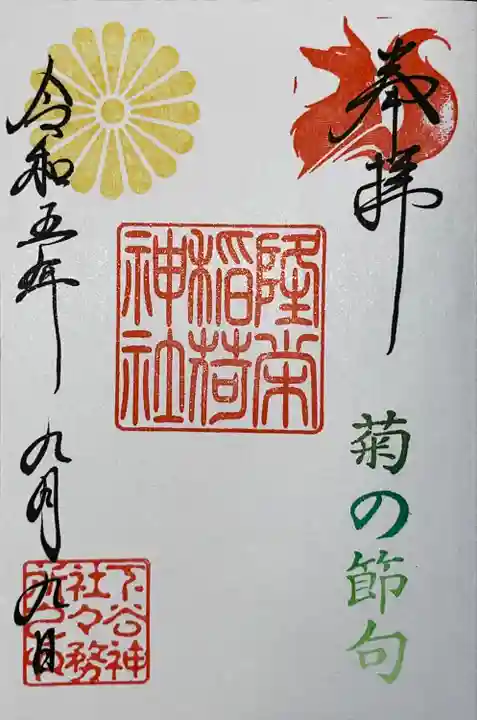 奉拝
菊の節句
隆栄
稲荷
神社
令和五年 九月九日
下谷神
社々務